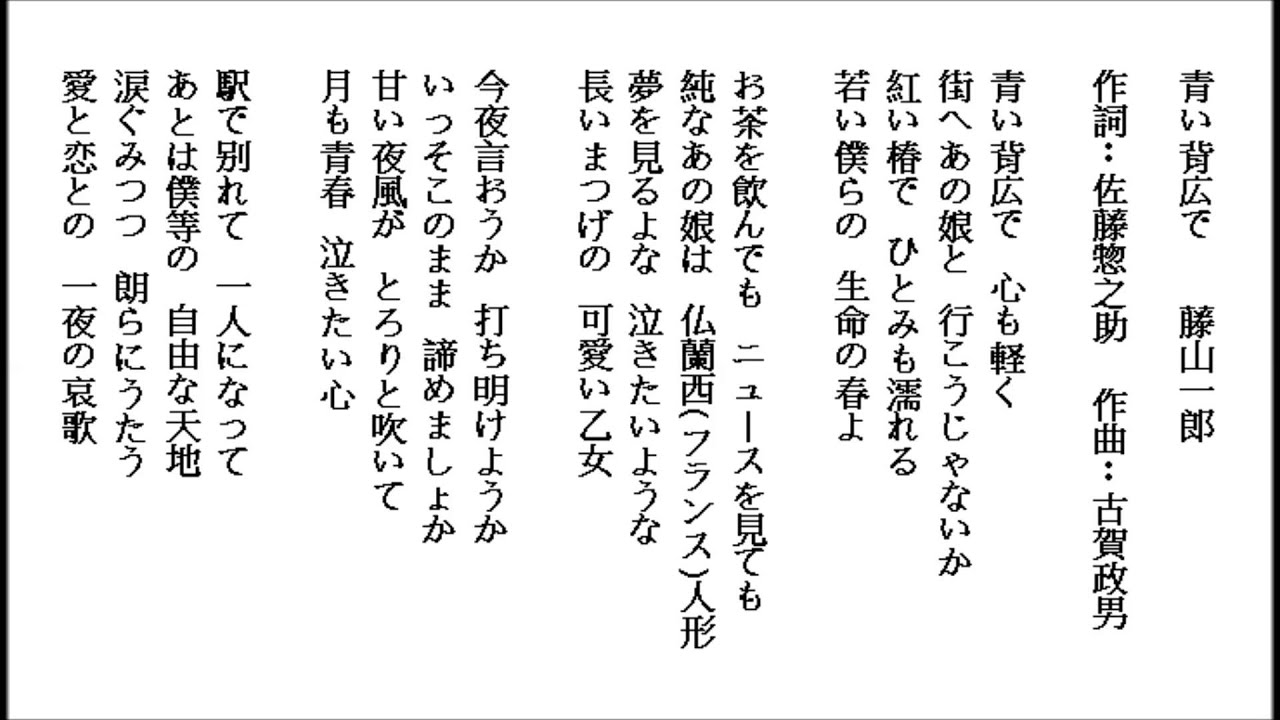 青い背広で　　藤山一郎
作詞：佐藤惣之助　作曲：古賀政男
青い背広で　心も軽く
街へあの娘と　行こうじゃないか
紅い椿で　ひとみも濡れる
若い僕らの　生命の春よ
お茶を飲んでも　ニュースを見ても
純なあの娘は　仏蘭西(フランス)人形
夢を見るよな　泣きたいような
長いまつげの　可愛い乙女
今夜言おうか　打ち明けようか
いっそこのまま　諦めましょか
甘い夜風が　とろりと吹いて
月も青春　泣きたい心
駅で別れて　一人になって
あとは僕等の　自由な天地
涙ぐみつつ　朗らにうたう
愛と恋との　一夜の哀歌